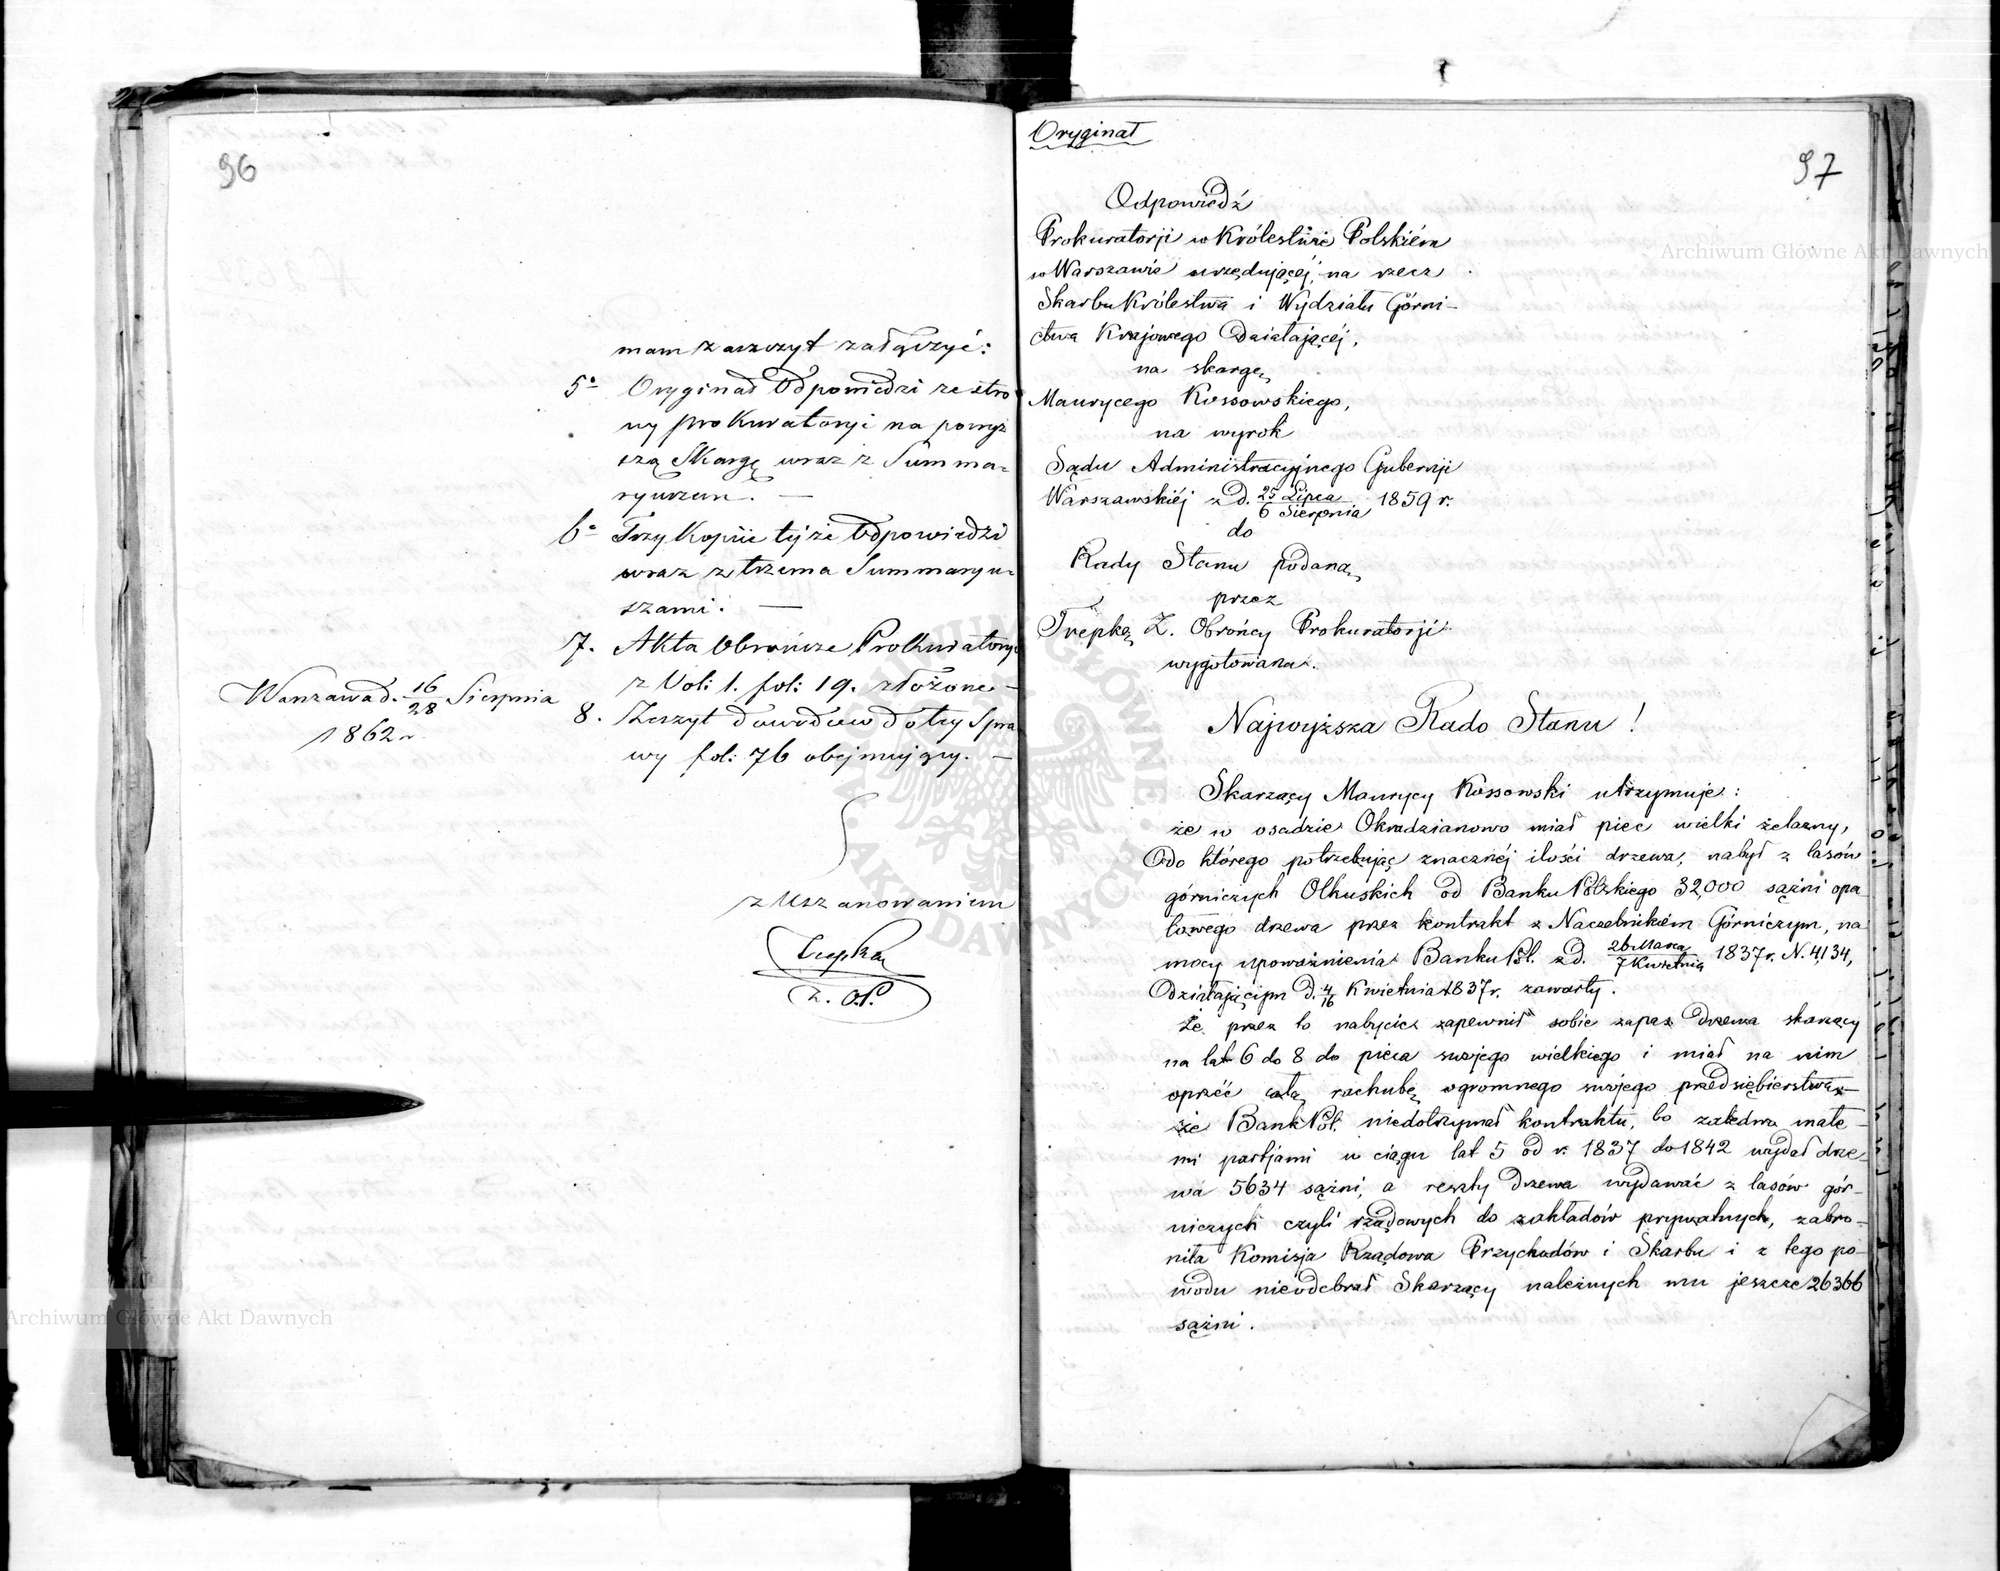 96
mam zaszczyt załączyć:
5° Oryginał Odpowiedzi ze stro
ny prokuratoryi na powyż
szą Skargę wraz z Summa-
ryuszem. —
6° Trzy Kopiie tejże Odpowiedzi
wraz z trzema Summaryu-
szami. —
7. Akta Obrończe Prokuratoryi
z Vol: 1. fol: 19. złożone —
8. Zeszyt dowodów do tey Spra
wy fol: 76 obejmujący. —
Warszawa d. 16/28 Sierpnia
1862 r.
z Uszanowaniem
Trepka
Z. O.P.
Oryginał
97
Odpowiedź
Prokuratorji w Królestwie Polskiém
w Warszawie urzędującéj, na rzecz
Skarbu Królestwa i Wydziału Górni-
ctwa Krajowego Działającéj,
na skargę
Maurycego Kossowskiego,
na wyrok
Sądu Administracyjnego Gubernji
Warszawskiéj z D. 25 Lipca/6 Sierpnia 1859 r.
do
Rady Stanu podaną,
przez
Trepkę Z. Obrońcy Prokuratorji
wygotowana.
Najwyższa Rado Stanu!
Skarzący Maurycy Kossowski utrzymuje:
że w osadzie Okradzianowo miał piec wielki żelazny,
do którego potrzebując znacznéj ilości drzewa, nabył z lasów
górniczych Olkuskich od Banku Polskiego 32,000 sążni opa
łowego drzewa przez kontrakt z Naczelnikiem Górniczym, na
mocy upoważnienia Banku Pol. z d. 26 Marca/7 Kwietnia 1837 r. N. 4,134,
Działającym D. 4/16 Kwietnia 1837 r. zawarty.
Że przez to nabycie zapewnił sobie zapas Drzewa skarzący
na lat 6 do 8 do pieca swojego wielkiego i miał na nim
oprzéć całą rachubę ogromnego swojego przedsiębierstwa —
że Bank Pol. niedotrzymał kontraktu, bo zaledwo małe-
mi partjami w ciągu lat 5 od r. 1837 do 1842 wydał drze-
wa 5634 sążni, a reszty Drzewa wydawać z lasów gór-
niczych czyli rządowych do zakładów prywatnych, zabro-
niła Komisja Rządowa Przychodów i Skarbu i z tego po-
wodu nieodebrał Skarzący należnych mu jeszcze 26366
sążni.
Archiwum Główne Akt Dawnych
Archiwum Główne Akt Dawnych